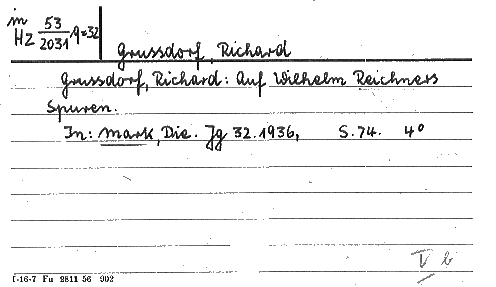 in
HZ 53/2031, q=32
Grussdorf, Richard
Grussdorf, Richard: Auf Wilhelm Reichners
Spuren.
In: Mark, Die. Jg 32.1936, S. 74. 4°
V b
I-16-7 Fu 2811 56 902